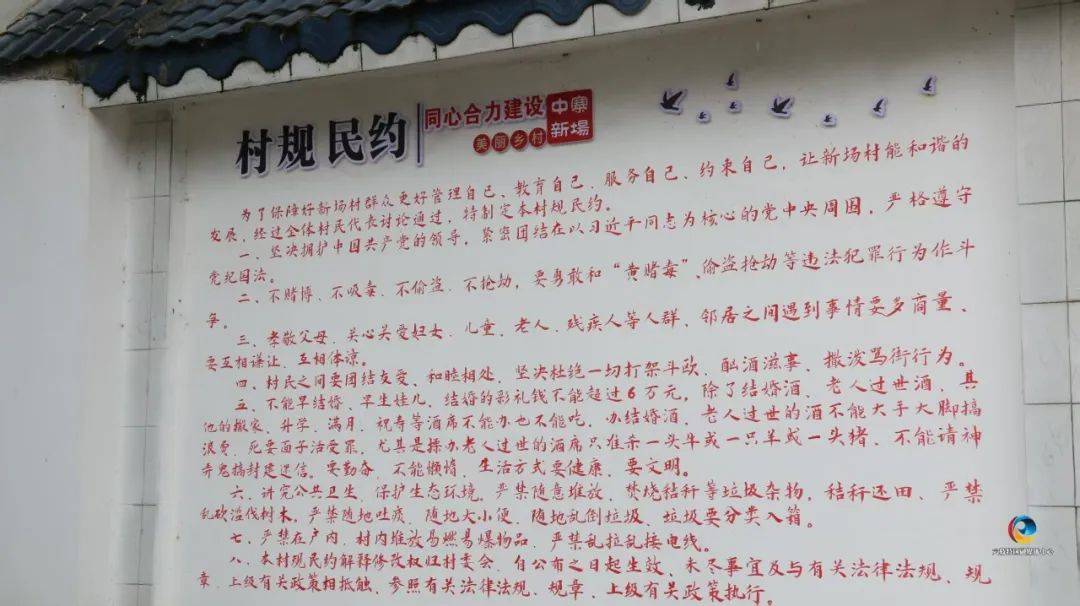 村规民约
同心合力建设
美丽乡村
中寨
新場
为了保障好新场村群众更好管理自己、教育自己、服务自己、约束自己，让新场村能和谐的
发展，经过全体村民代表讨论通过，特制定本村规民约。
一、坚决拥护中国共产党的领导，紧密团结在以习近平同志为核心的党中央周围，严格遵守
党纪国法。
二、不赌博、不吸毒、不偷盗、不抢劫，要勇敢和“黄赌毒”、偷盗抢劫等违法犯罪行为作斗
争。
三、孝敬父母，关心关爱妇女、儿童、老人、残疾人等人群，邻居之间遇到事情要多商量、
要互相谦让、互相体谅。
四、村民之间要团结友爱、和睦相处，坚决杜绝一切打架斗欧、酗酒滋事、撒泼骂街行为。
五、不能早结婚、早生娃儿，结婚的彩礼钱不能超过6万元，除了结婚酒、老人过世酒，其
他的搬家、升学、满月、祝寿等酒席不能办也不能吃，办结婚酒，老人过世的酒不能大手大脚搞
浪费，死要面子活受罪，尤其是操办老人过世的酒席只准杀一头牛或一只羊或一头猪，不能请神
弄鬼搞封建迷信。要勤奋，不能懒惰，生活方式要健康、要文明。
六、讲究公共卫生，保护生态环境，严禁随意堆放、焚烧秸秆等垃圾杂物，秸秆还田、严禁
乱砍滥伐树木，严禁随地吐痰、随地大小便、随地乱倒垃圾、垃圾要分类入箱。
七、严禁在户内、村内堆放易燃易爆物品，严禁乱拉乱接电线。
八、本村规民约解释修改权归村委会，自公布之日起生效，未尽事宜及与有关法律法规、规
章、上级有关政策相抵触，参照有关法律法规、规章、上级有关政策执行。